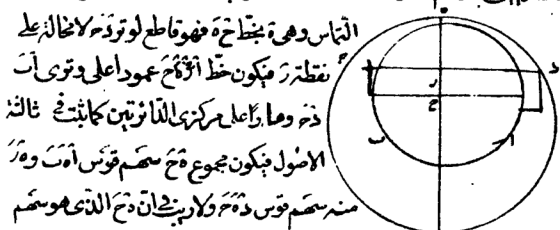 التماس وهى ة بخط خ ة فهو قاطع لو تر ذ خ لا محالة على
نقطة ر فيكون خط عمودا على وترى اب
ذ خ وما را على مركزى الدائرتين كما ثبت فى ثالثة
الاصول فيكون مجموع ة ح سهم قوس ا ة ب و ة ر
منه سهم قوس ذ ة خ ولا ريب فى ان ة ح الذى هو سهم